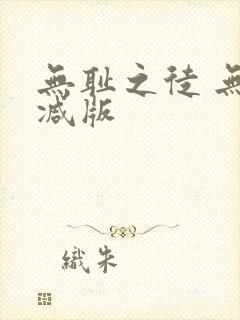 無耻之徒 無
減版
織朱